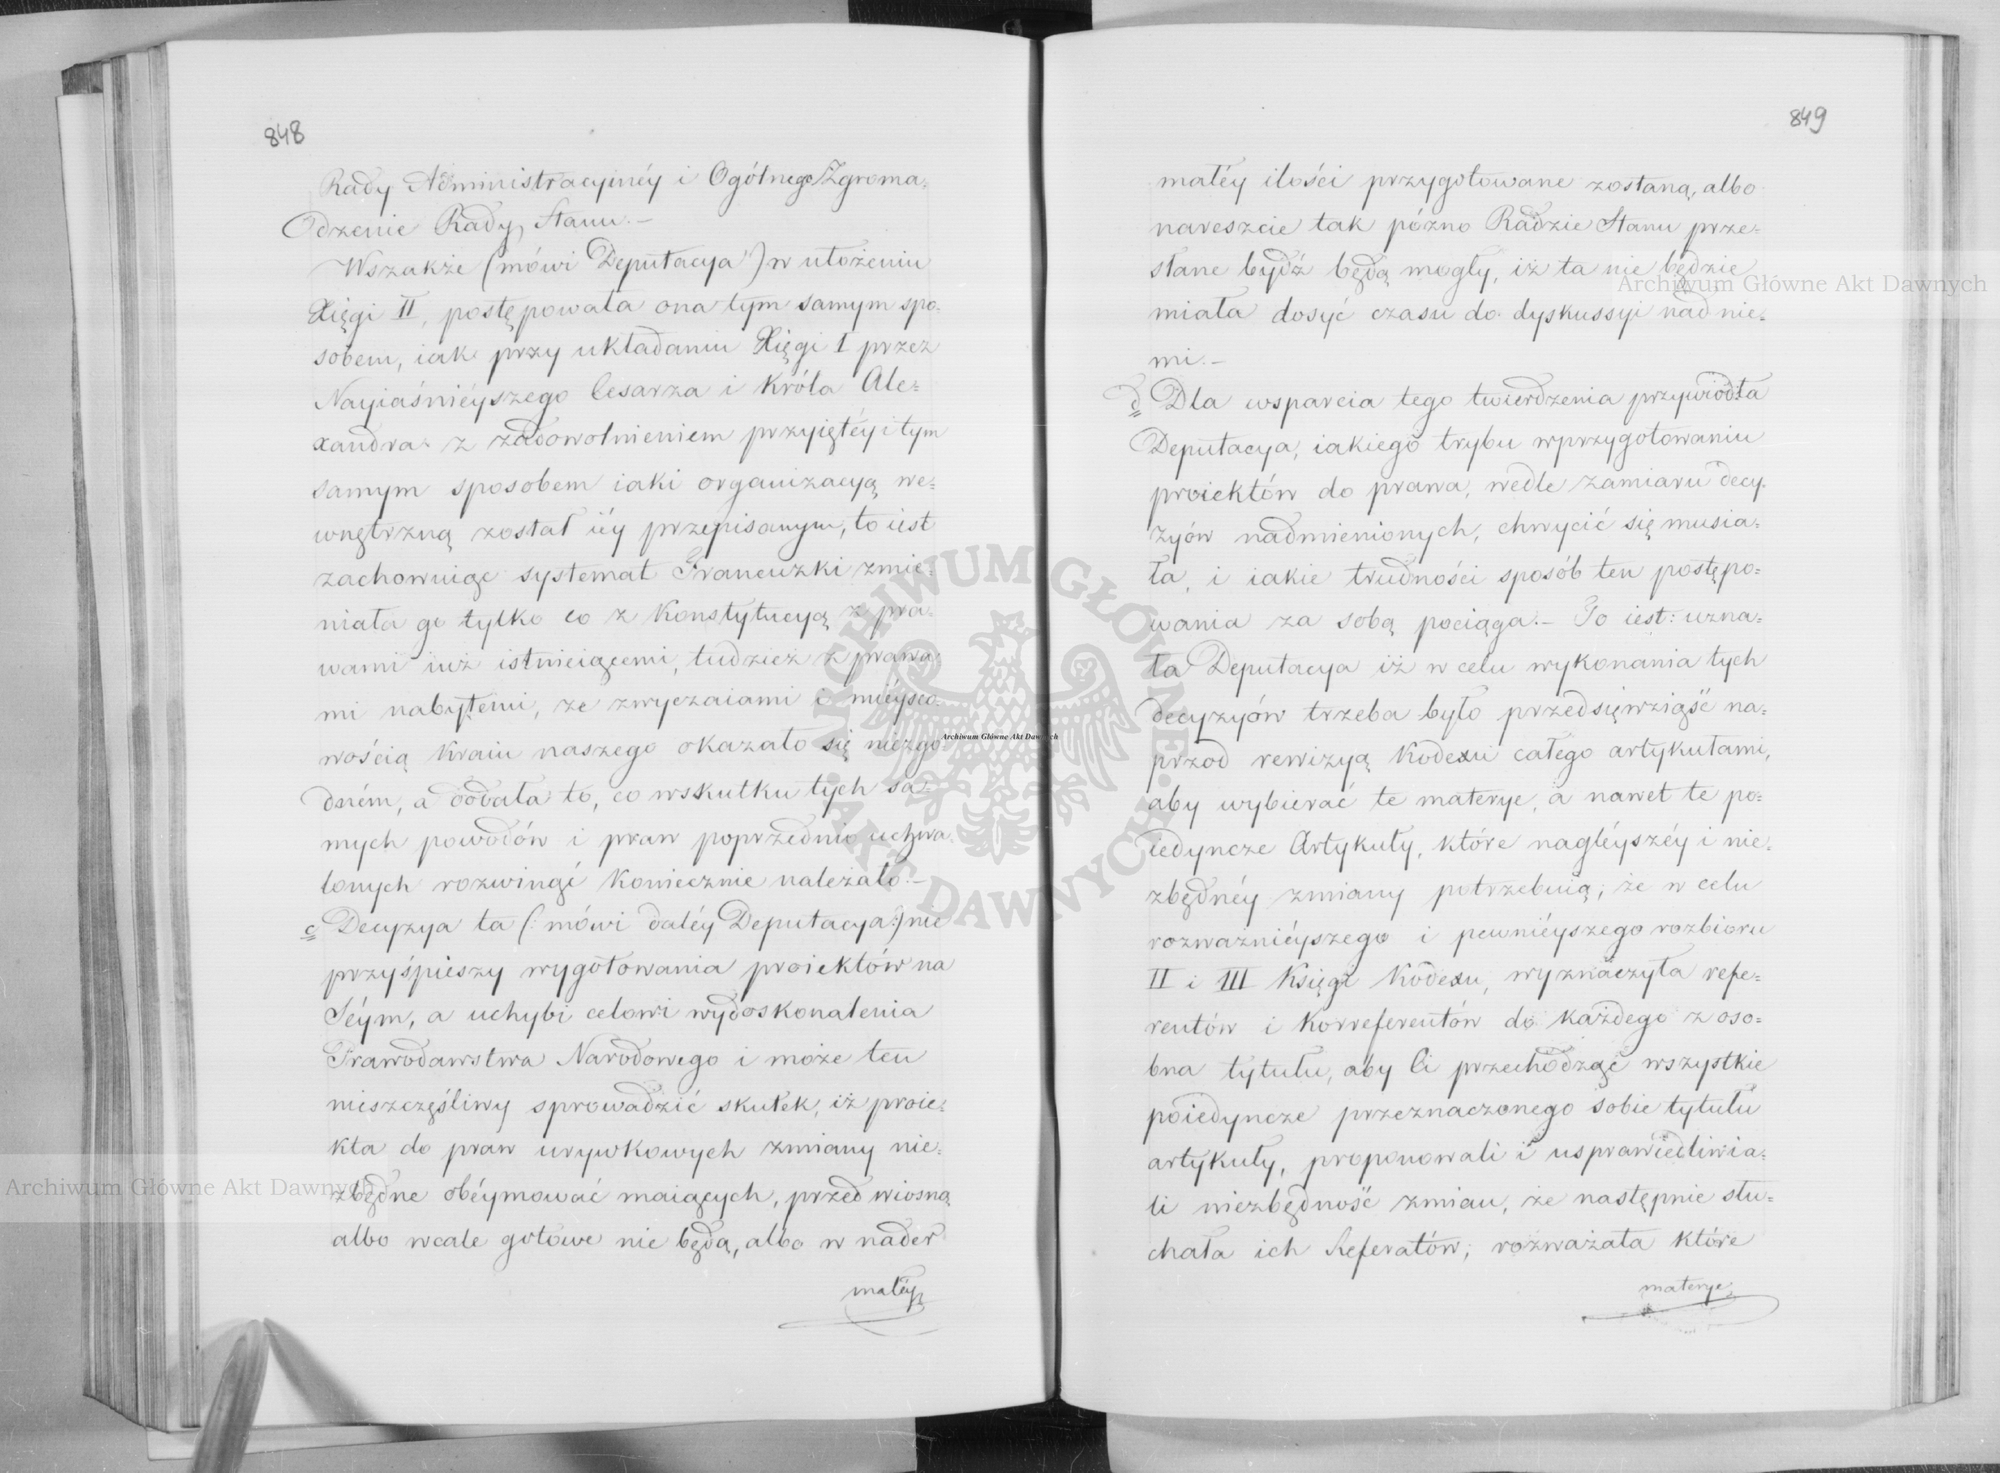 848
Rady Administracyinéy i Ogólnego Zgroma-
dzenie Rady Stanu.—
Wszakże (mówi Deputacya) w ułożeniu
Xięgi II, postępowała ona tym samym spo-
sobem, iak przy układaniu Xięgi I przez
Nayiaśniéyszego Cesarza i Króla Ale-
xandra z zadowolnieniem przyiętéy i tym
samym sposobem iaki organizacyą we-
wnętrzną został iéy przepisanym, to iest
zachowuiąc systemat Francuzki zmie-
niała go tylko co z Konstytucyą z pra-
wami iuż istnieiącemi, tudzież z prawa-
mi nabytemi, ze zwyczaiami i mieysco-
wością Kraiu naszego okazało się niezgo-
dném, a dodała to, co wskutku tych sa-
mych powodów i praw poprzednio uchwa-
lonych rozwinąć koniecznie należało.—
c Decyzya ta (: mówi daléy Deputacya:) nie
przyśpieszy wygotowania proiektów na
Séym, a uchybi celowi wydoskonalenia
Prawodawstwa Narodowego i może ten
nieszczęśliwy sprowadzić skutek, iż proie-
kta do praw urywkowych zmiany nie-
zbędne obéymować maiących, przed wiosną
albo wcale gotowe nie będą, albo w nader
małéy
849
małéy ilości przygotowane zostaną, albo
nareszcie tak pózno Radzie Stanu prze-
słane bydź będą mogły, iż ta nie będzie
miała dosyć czasu do dyskussyi nad nie-
mi.—
d Dla wsparcia tego twierdzenia przywiodła
Deputacya, iakiego trybu w przygotowaniu
proiektów do prawa, wedle zamiaru decy-
zyów nadmienionych, chwycić się musia-
ła, i iakie trudności sposób ten postępo-
wania za sobą pociąga.— To iest: uzna-
ła Deputacya iż w celu wykonania tych
decyzyów trzeba było przedsięwziąść na-
przod rewizyą Kodexu całego artykułami,
aby wybierać te materye, a nawet te po-
iedyncze Artykuły, które nagléyszéy i nie-
zbędnéy zmiany potrzebuią; że w celu
rozważniéyszego i pewniéyszego rozbioru
II i III Księgi Kodexu, wyznaczyła refe-
rentów i Korreferentów do każdego z oso-
bna tytułu, aby Ci przechodząc wszystkie
poiedyncze przeznaczonego sobie tytułu
artykuły, proponowali i usprawiedliwia-
li niezbędność zmian, że następnie słu-
chała ich Referatów, rozważała które
materye
Archiwum Główne Akt Dawnych
Archiwum Główne Akt Dawnych
Archiwum Główne Akt Dawnych
ARCHIWUM GŁÓWNE
AKT DAWNYCH